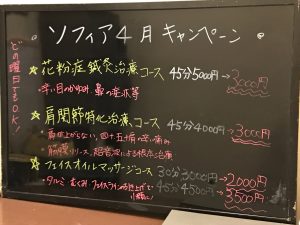 。ソフィア4月キャンペーン。
どの曜日でもOK!
☆花粉症鍼灸治療コース 45分5000円→3000円
・辛い目のかゆみ 鼻の症状等
☆肩関節特化治療コース 45分4000円→3000円
・肩が上がらない、四十五十肩の辛い痛み
筋膜リリース、超音波による根点治療
☆フェイスオイルマッサージコース 30分3000円→2000円
45分4500円→3500円
・タルミ むくみ フェイスラインの引き上げで
小顔に!